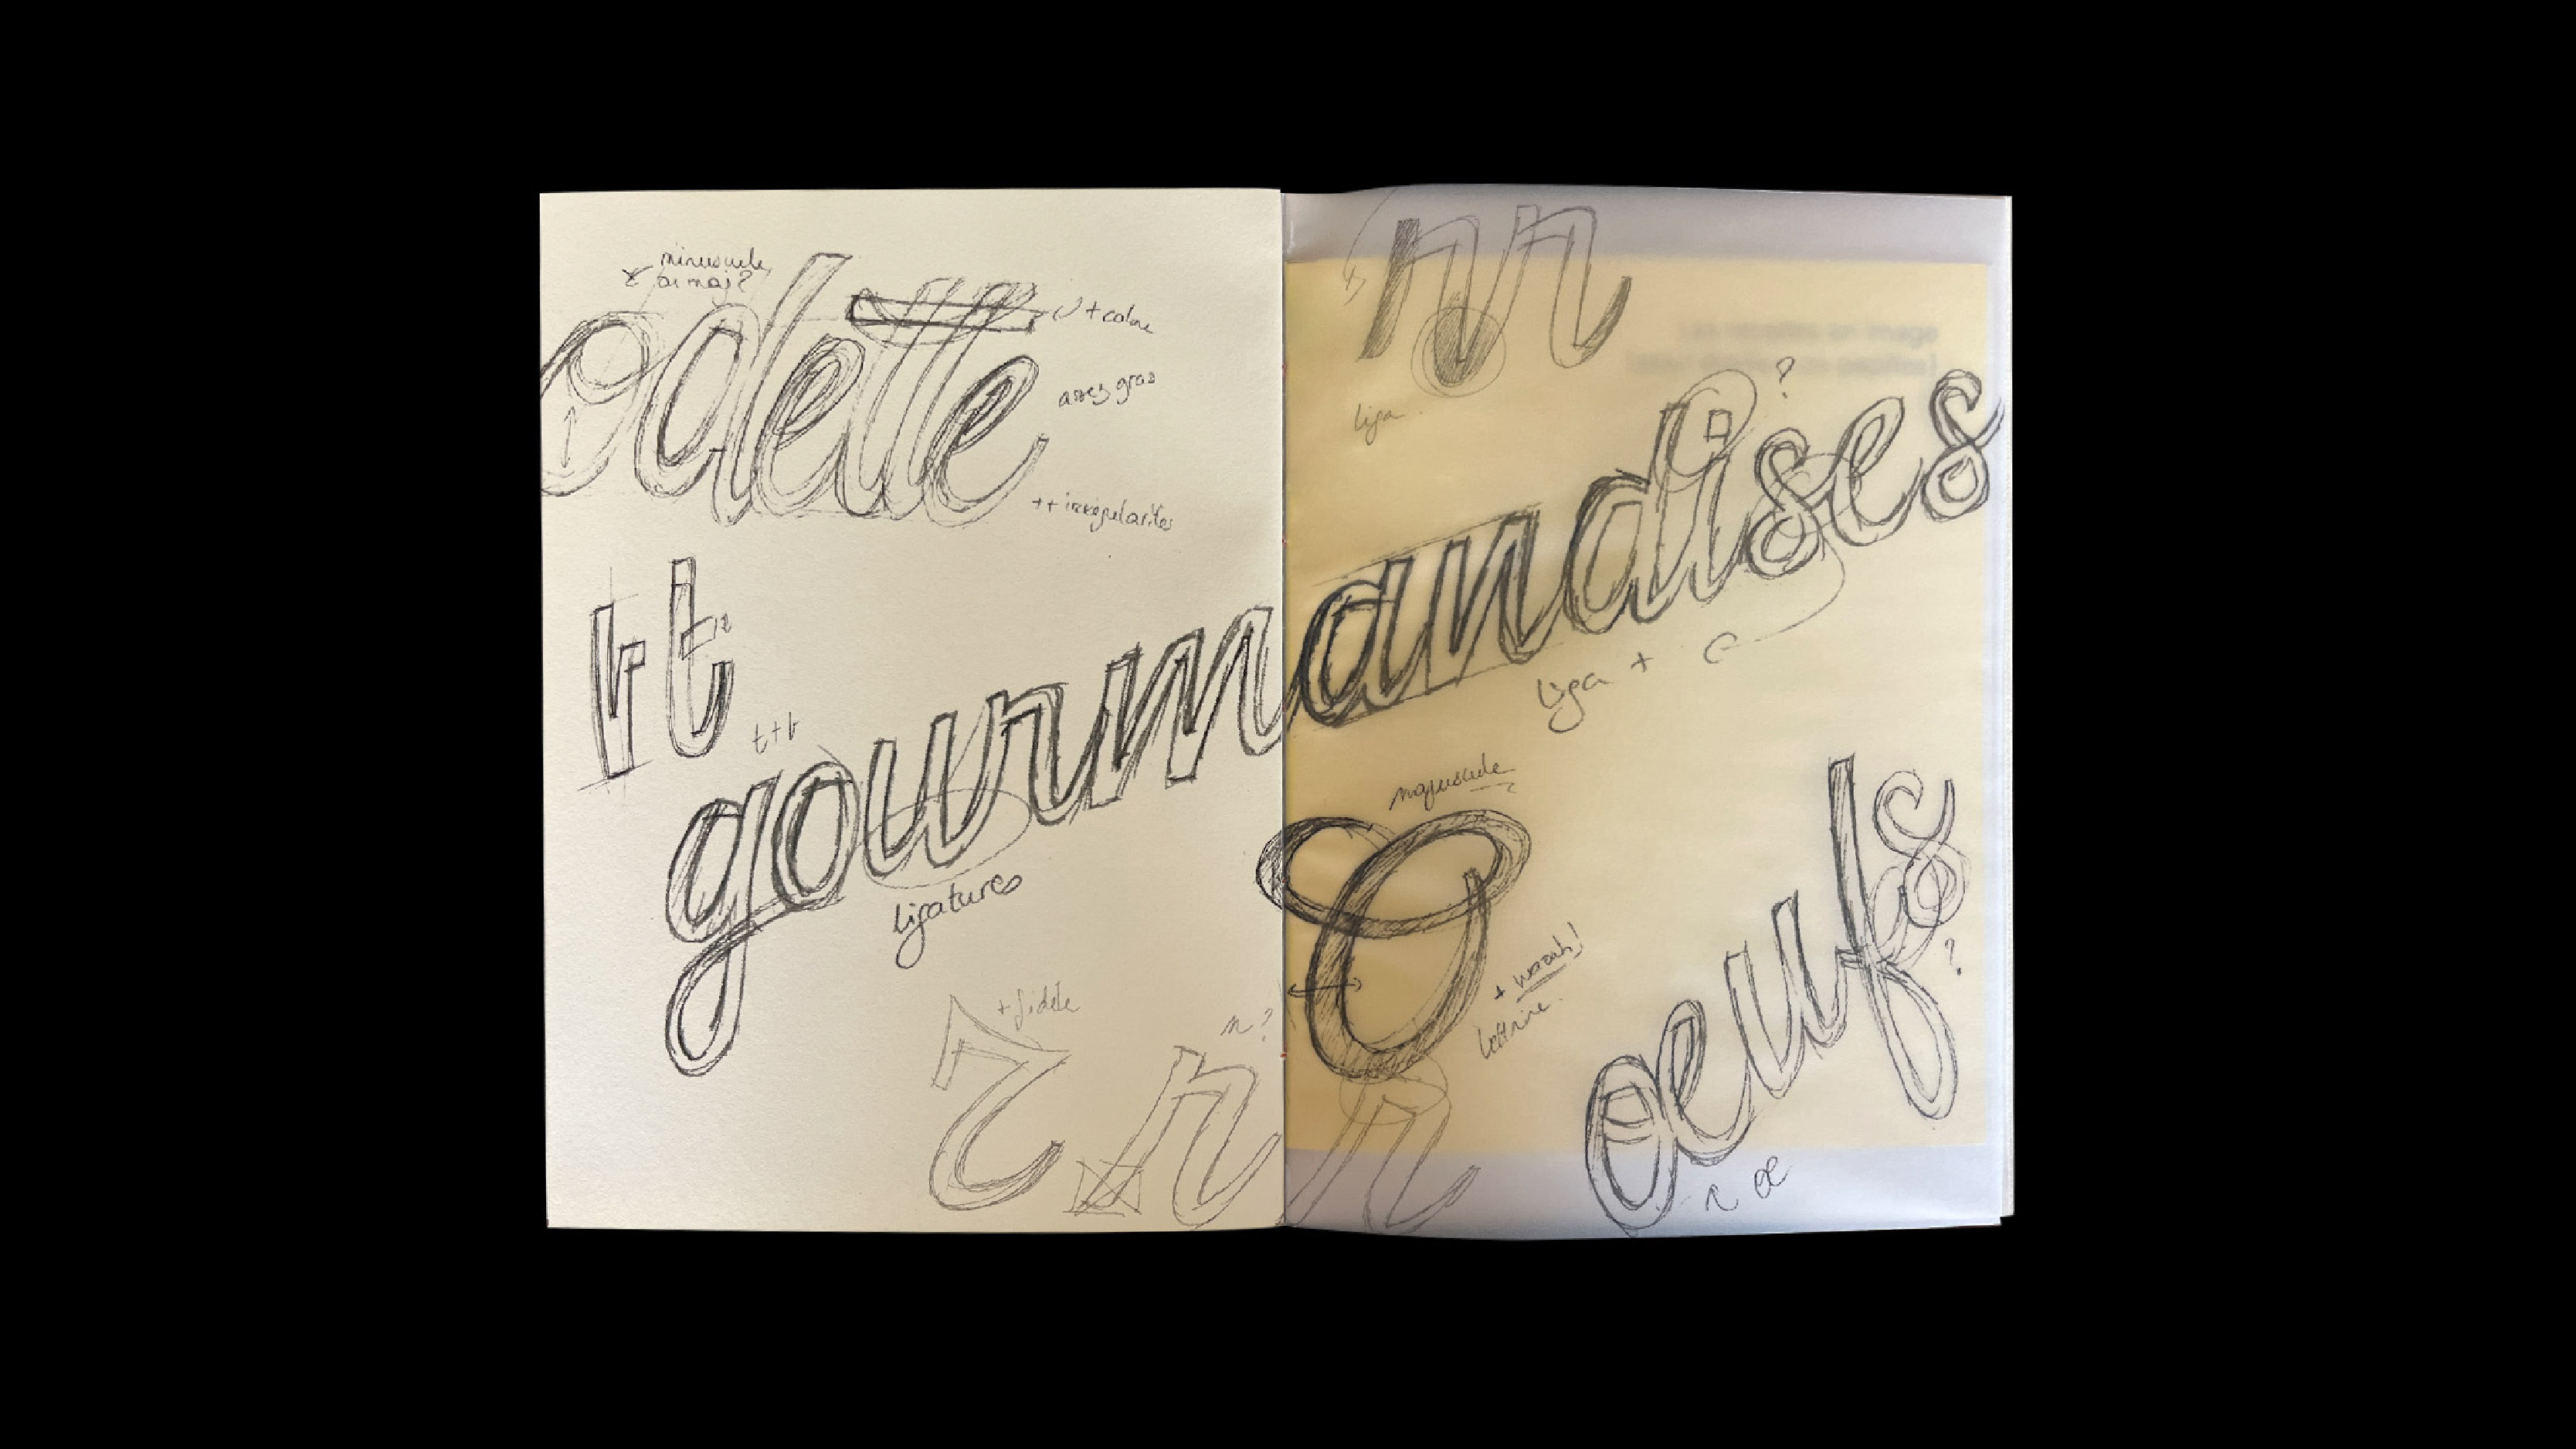 minuscule
ou maj?
odette
+ colore
assez gras
++ irrégularités
t t
t+t
gourmandises
ligatures
+ fidèle
r n
n?
rn
liga.
?
liga +
majuscule
O
+ woouh!
lettrine.
n
oeufs
?
œ